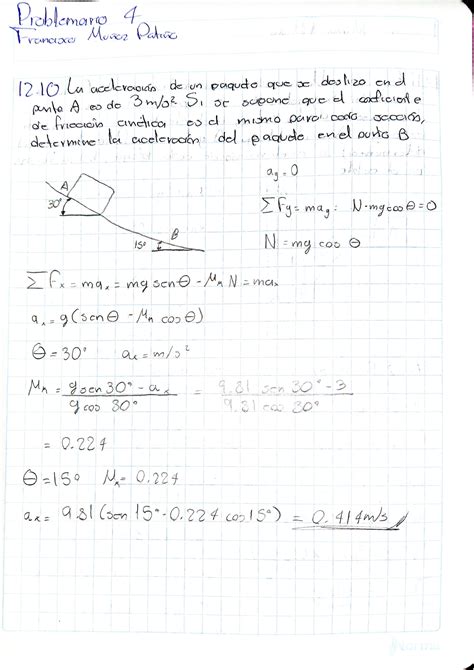 Problemario 4
Francisco Muñoz Patiño
12.10 La aceleración de un paquete que se desliza en el
punto A es de 3m/s² Si se supone que el coeficiente
de fricción cinética es el mismo para cada sección,
determine la aceleración del paquete en el punto B
A
30°
15°
B
ay = 0
ΣFy = may : N - mg cos θ = 0
N = mg cos θ
ΣFx = max = mg sen θ - μk N = max
ax = g(sen θ - μk cos θ)
θ = 30° ax = m/s²
μk = g sen 30° - ax / g cos 30° = 9.81 sen 30° - 3 / 9.81 cos 30°
= 0.224
θ = 15° μk = 0.224
ax = 9.81 (sen 15° - 0.224 cos 15°) = 0.414 m/s
Norma